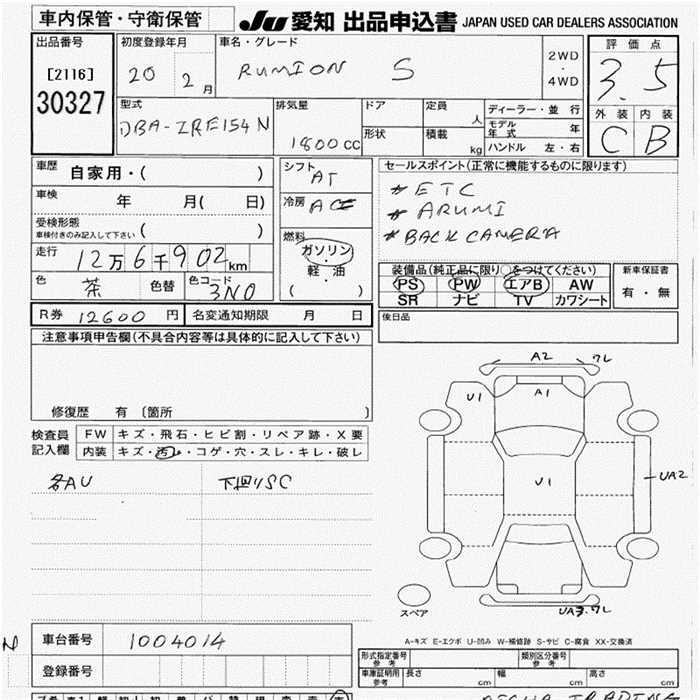 車内保管・守衛保管
JU 愛知 出品申込書 JAPAN USED CAR DEALERS ASSOCIATION
出品番号
[2116]
30327
初度登録年月
20 2月
車名・グレード
RUMION S
2WD
・
4WD
評価点
3.5
外装 内装
C B
型式
DBA-ZRE154N
排気量
1800cc
ドア
形状
定員 人
積載 kg
ディーラー・並行
モデル年式 年
ハンドル 左・右
車歴 自家用・( )
車検 年 月( 日)
受検形態
車検付きのみ記入して下さい ( )
走行 12万6千902km
色 茶 色替 色コード 3N0
シフト
AT
冷房 AC
燃料
ガソリン
・
軽・油
( )
セールスポイント(正常に機能するものに限ります)
*ETC
*ARUMI
*BACK CAMERA
装備品(純正品に限り○をつけてください)
PS PW エアB AW
SR ナビ TV カワシート
新車保証書
有・無
R券 12600 円 名変通知期限 月 日
後日品
注意事項申告欄(不具合内容等は具体的に記入して下さい)
修復歴 有〔箇所 〕
検査員
記入欄
FW キズ・飛石・ヒビ割・リペア跡・X要
内装 キズ・汚れ・コゲ・穴・スレ・キレ・破レ
各AU 下回りSC
A2 ワレ
U1 A1
U1
UA2
UA3.ワレ
スペア
A-キズ E-エクボ U-凹み W-補修跡 S-サビ C-腐食 XX-交換済
N
車台番号 1004014
登録番号
形式指定番号
参考
類別区分番号
参考
車庫証明用
参考
長さ cm 幅 cm 高さ cm